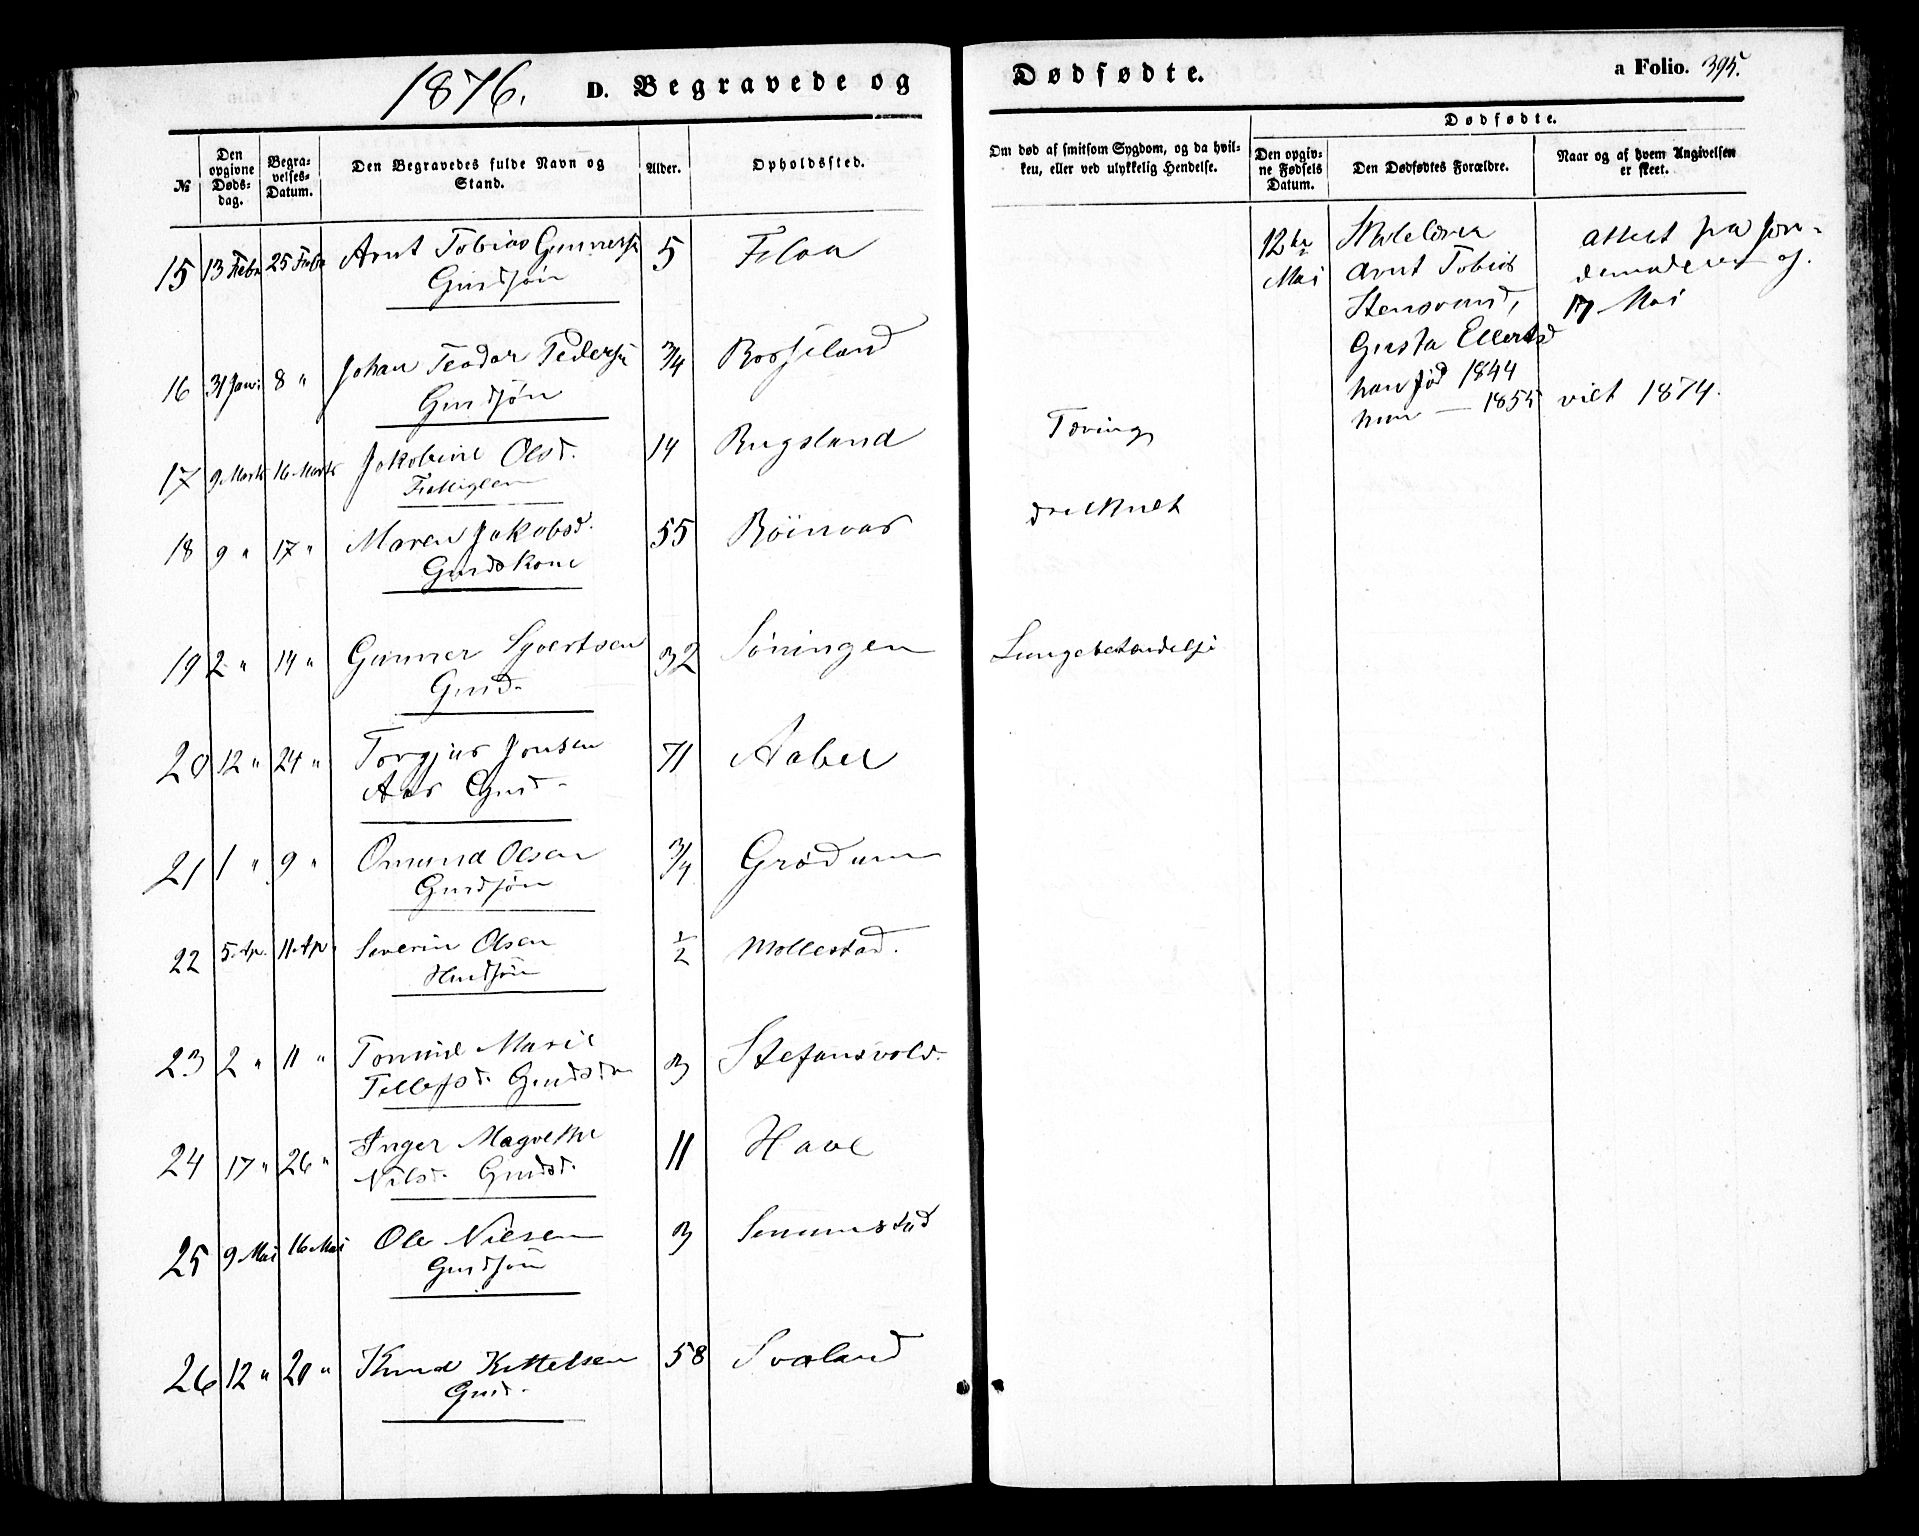 1876. D. Begravede og Dødfødte. a Folio. 395.
№
Den opgivne Døds-dag.
Begra-velses-Datum.
Den Begravedes fulde Navn og Stand.
Alder.
Opholdssted.
Om død af smitsom Sygdom, og da hvil-ken, eller ved ulykkelig Hendelse.
Dødfødte.
Den opgiv-ne Fødsels Datum.
Den Dødfødtes Forældre.
Naar og af hvem Angivelsen er skeet.
15 13 Febr 25 Febr Arnt Tobias Gunners
Gmdsøn
5
16 31 Jan: 8 " Johan Teodor Peders
Gmdsøn
3/4 Rosseland
17 9 Marts 16 Marts Jakobine Olsd.
14 Rugsland
Tæring
18 9 " 17 " Maren Jakobsd.
Gmdskone
55 Röinaas
druknet
19 2 " 14 " Gunner Syvertsen
Gmd.
32
Lungebetændelse
20 12 " 24 " Torgjus Jonsen
Aas Gmd.
71 Aabel
21 1 " 9 " Omund Olsen
Gmdsøn
3/4 Grødum
22 5. Ap. 11. Ap Severin Olsen
Hmdsøn
1/2 Mollestad.
23 2 " 11 " Tomine Marie
Tellefsd. Gmdsd
3 Stefansvold.
24 17 " 26 " Inger Magrethe
Nilsd. Gmdsd.
11 Have
25 9 Mai 16 Mai Ole Nilsen
Gmdsøn
3
26 12 " 20 " Knud Kittelsen
Gmd.
58 Svaland
12te
Mai
Arnt Tobias
Gusta Ellertsd
han fød 1844
hun — 1855
attest fra jor-
demoderen af
17 Mai
viet 1874.